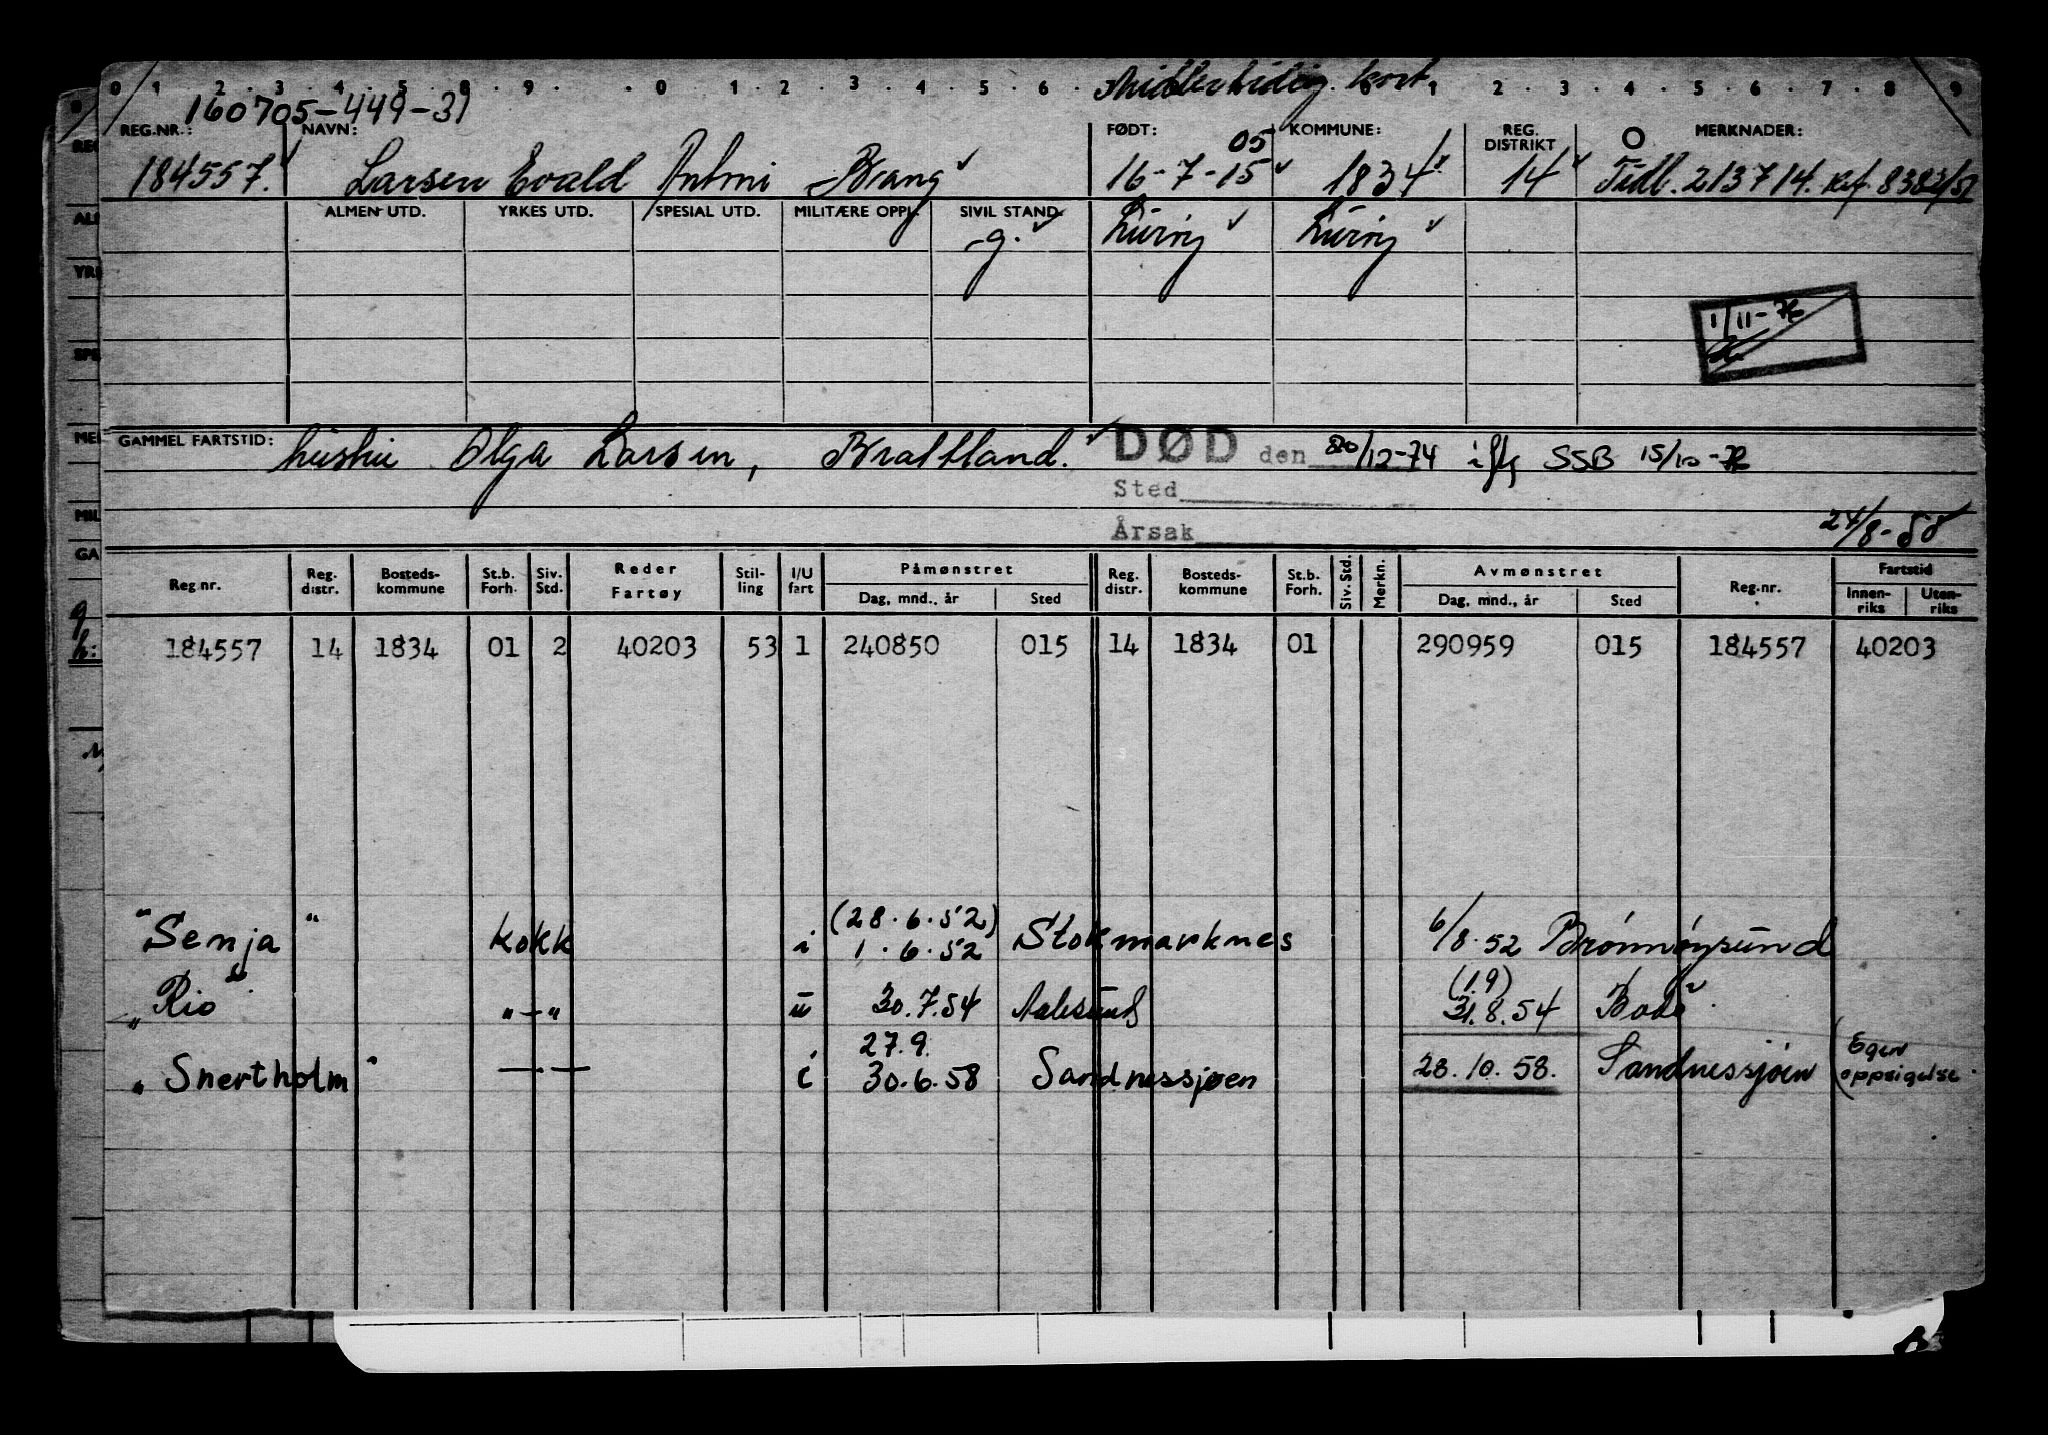 0 1 2 3 4 5 8 9 0 1 2 3 4 5 6 Midlertidig kort 1 2 3 4 5 6 7 8 9
160705-449-31
REG.NR.: NAVN: FØDT: KOMMUNE: REG. DISTRIKT MERKNADER:
05
184557. Larsen Evald Antmi Brang 16-7-15 1834 14 Tidl. 213714. Ref. 8383/51
ALMEN UTD. YRKES UTD. SPESIAL UTD. MILITÆRE OPPL. SIVIL STAND
g. Lurøy Lurøy
1/11-76
GAMMEL FARTSTID: hustru Olga Larsen, Brattland. DØD den 20/12-74 iflg SSB 15/10-76
Sted
Årsak
24/8-50
Reg.nr. Reg. distr. Bosteds-kommune St.b. Forh. Siv. Std. Reder Fartøy Stil-ling I/U fart Påmønstret Dag, mnd., år Sted Reg. distr. Bosteds-kommune St.b. Forh. Siv. Std. Merkn. Avmønstret Dag, mnd., år Sted Reg.nr. Fartstid Innen-riks Uten-riks
184557 14 1834 01 2 40203 53 1 240850 015 14 1834 01 290959 015 184557 40203
(28.6.52)
"Senja" Kokk i 1.6.52 Stokmarknes 6/8.52 Brønnøysund
(19)
"Rio" "-" u 30.7.54 Aalesund 31.8.54 Bodø
27.9.
"Snertholm" — i 30.6.58 Sandnessjøen 28.10.58. Sandnessjøen (Egen oppsigelse.